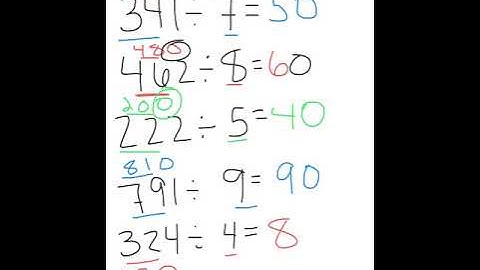 341÷7=50
480
462÷8=60
200
222÷5=40
810
791÷9=90
324÷4=8